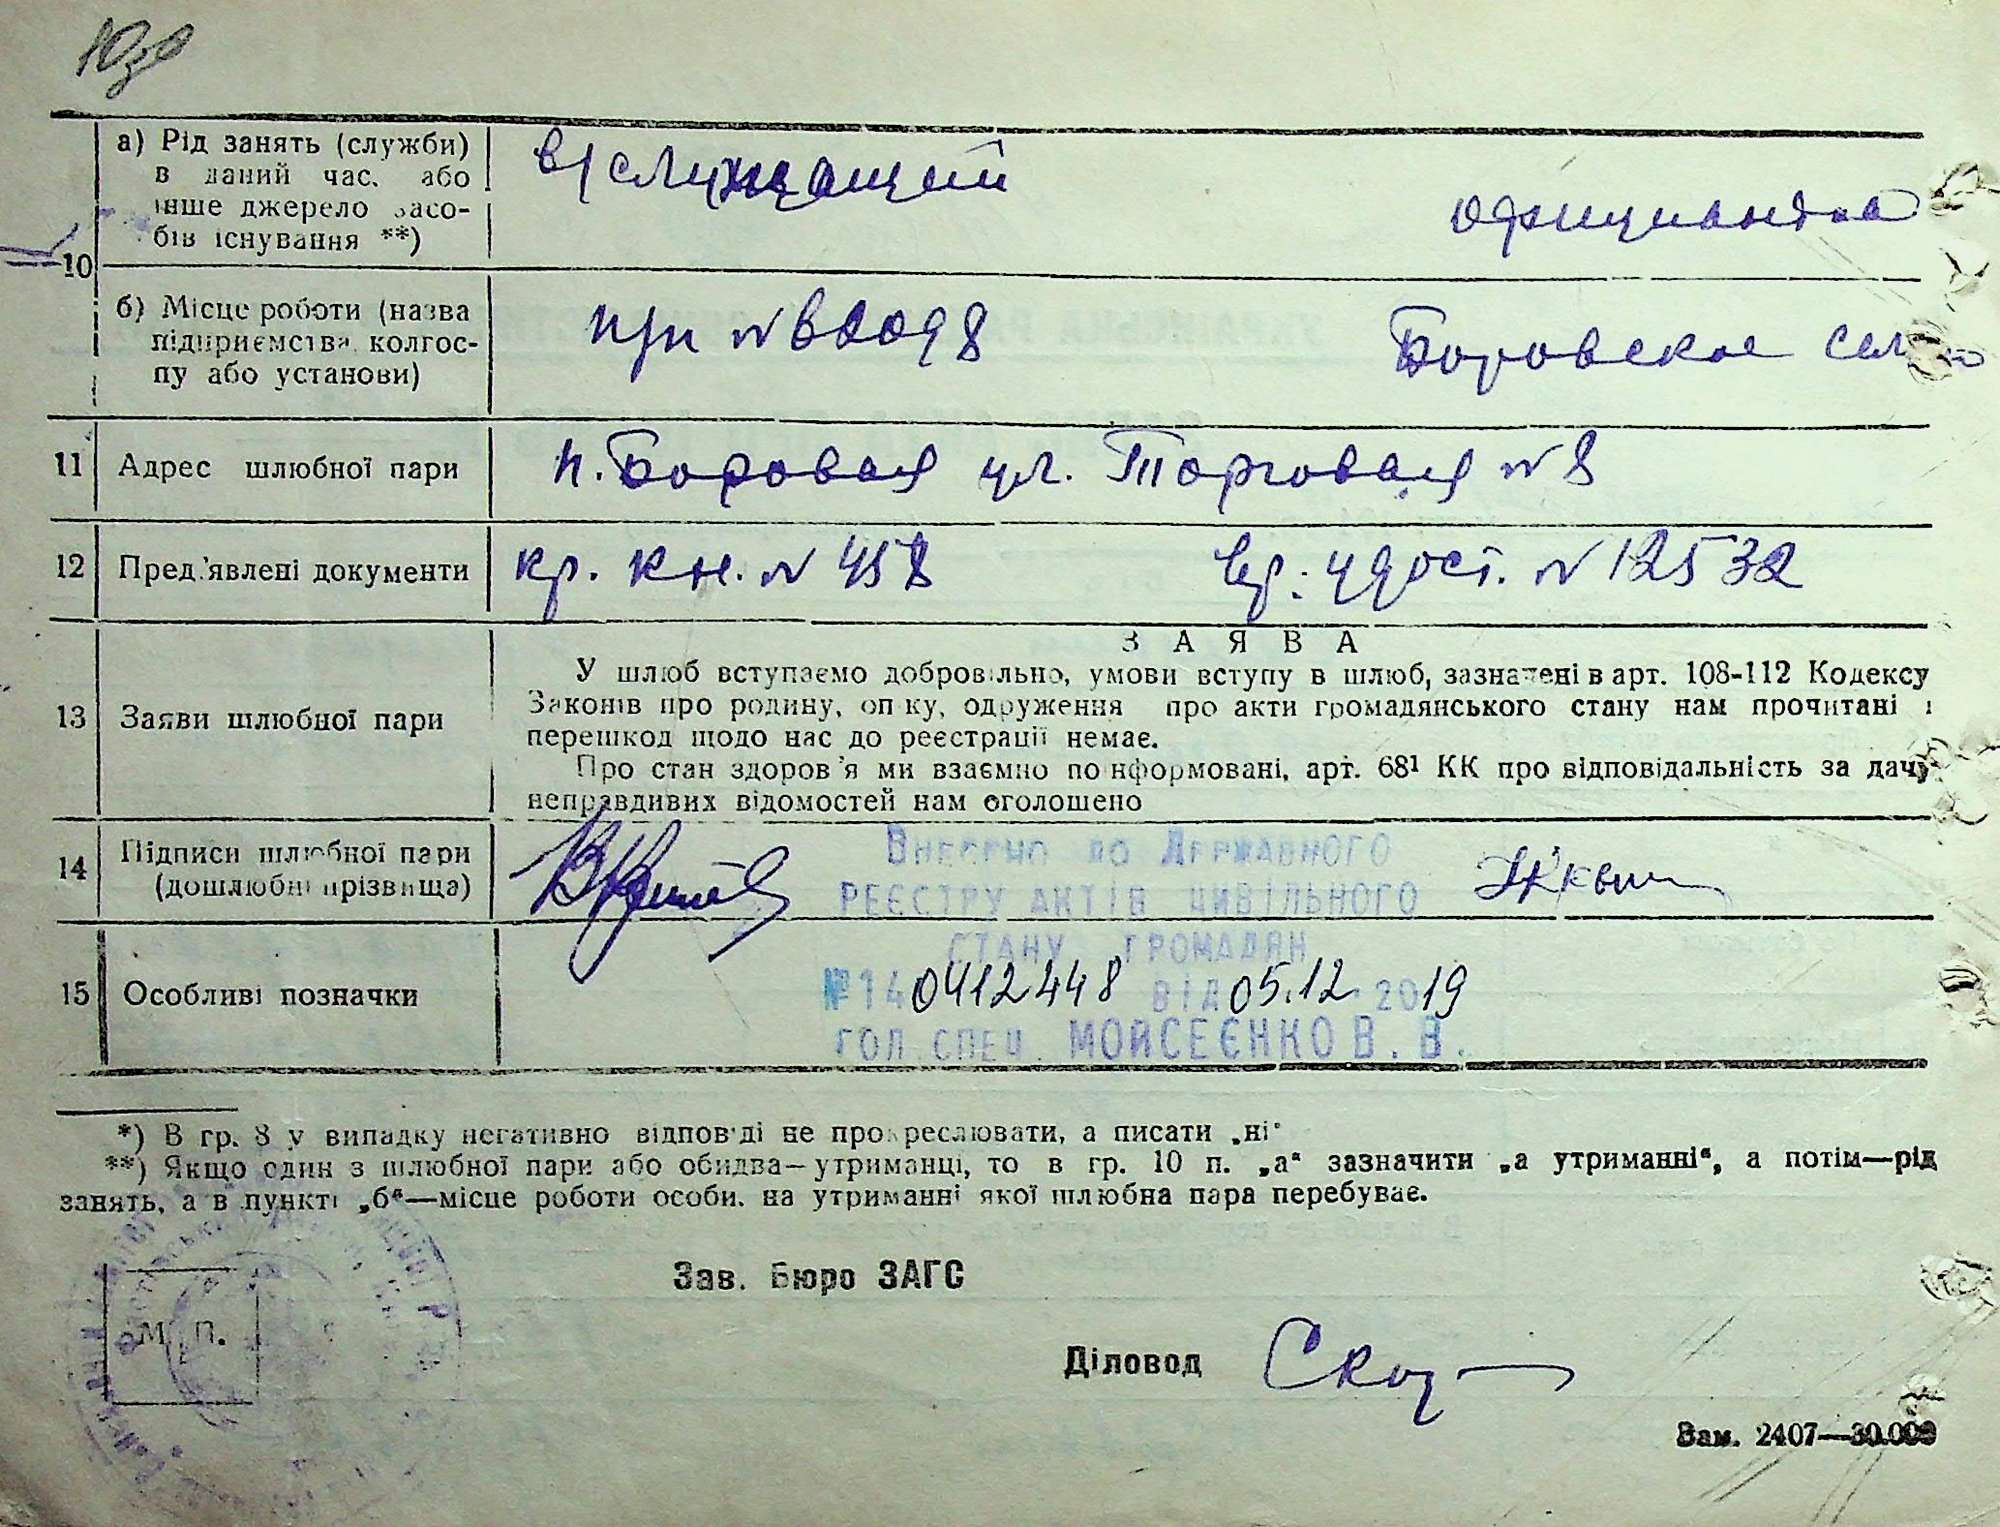 а) Рід занять (служби)
в даний час, або
інше джерело засо-
бів існування **)
в/служащий
официантка
10
б) Місце роботи (назва
підприємства, колгос-
пу або установи)
при №В2098
Боровское сел
11 Адрес шлюбної пари п. Боровая ул. Торговая №8
12 Пред'явлені документи кр. кн. № 458 вр. удост. № 12532
ЗАЯВА
У шлюб вступаємо добровільно, умови вступу в шлюб, зазначені в арт. 108-112 Кодексу
Законів про родину, опіку, одруження про акти громадянського стану нам прочитані і
13 Заяви шлюбної пари
перешкод щодо нас до реєстрації немає.
Про стан здоров'я ми взаємно поінформовані, арт. 68¹ КК про відповідальність за дачу
неправдивих відомостей нам оголошено
14 Підписи шлюбної пари
(дошлюбні прізвища)
Внесено до Державного
реєстру актів цивільного
стану громадян
№14 0412448 від 05.12 2019
гол. спец. МОЙСЕЄНКО В. В.
15 Особливі позначки
*) В гр. 8 у випадку негативно відповіді не прокреслювати, а писати „ні"
**) Якщо один з шлюбної пари або обидва—утриманці, то в гр. 10 п. „а" зазначити „а утриманні", а потім—рід
занять, а в пункті „б"—місце роботи особи, на утриманні якої шлюбна пара перебуває.
Зав. Бюро ЗАГС
М. П.
Діловод
Зам. 2407—30.000